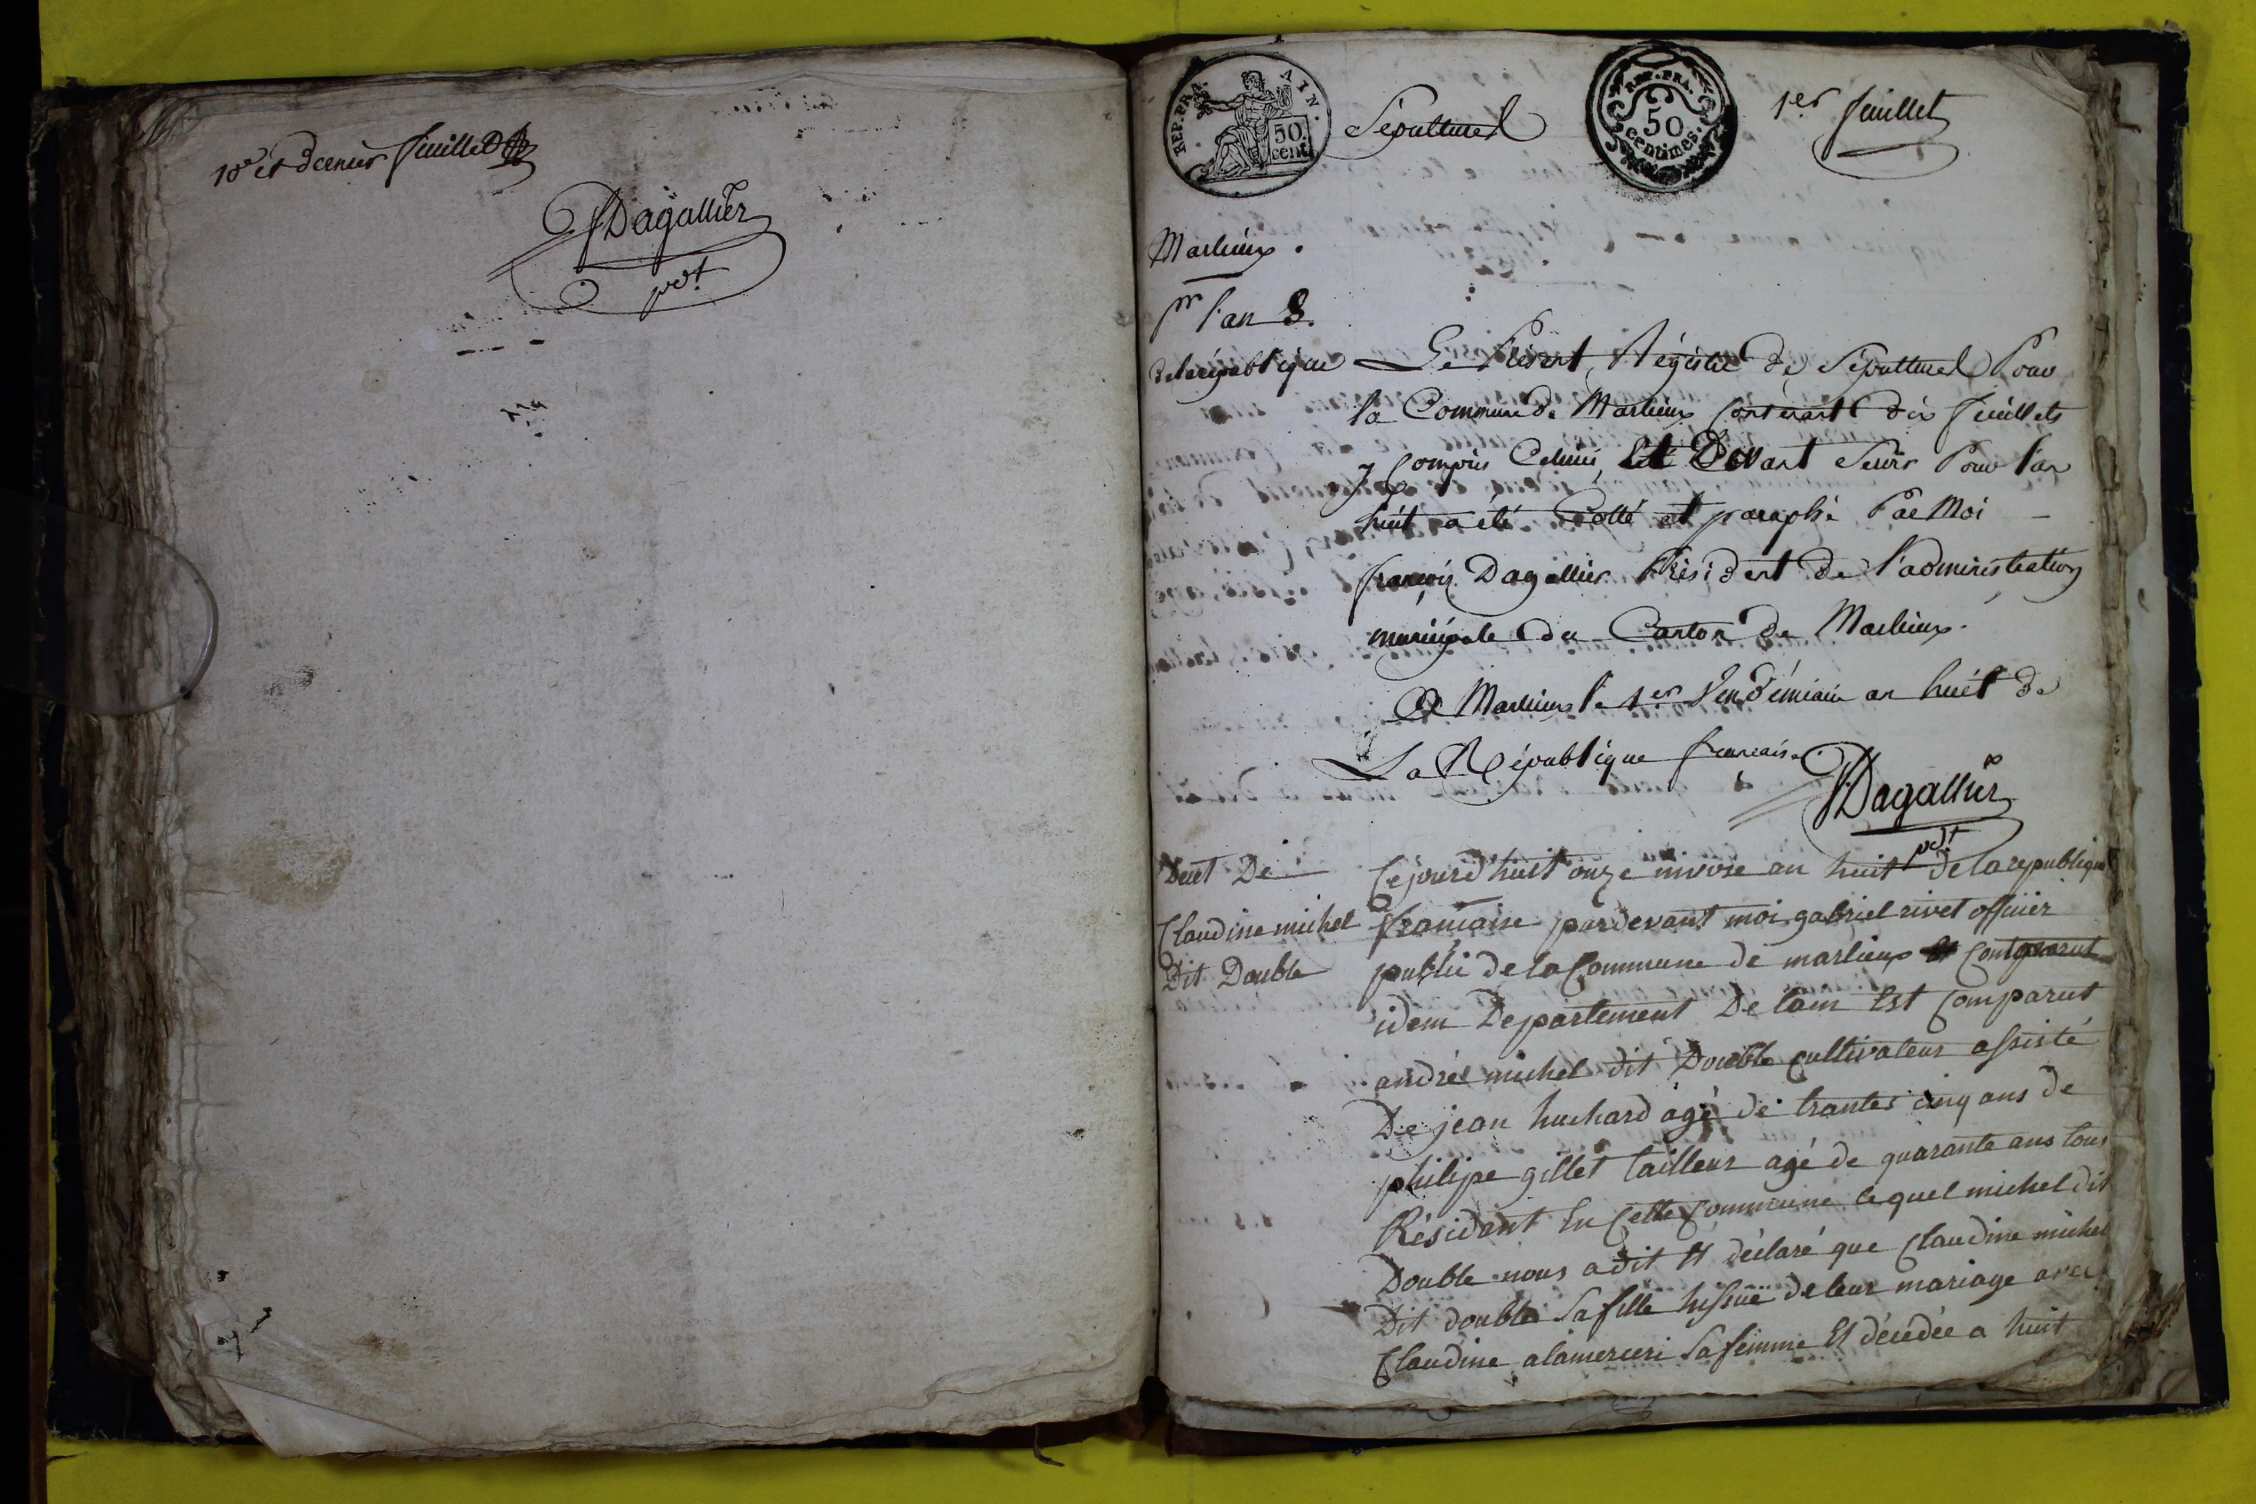 10e et dernier feuillet
Dagallier
pdt
REP. FRA. AIN.
50 cent.
Sépultures
REP. FRA.
50
centimes.
1er feuillet
Marlieux.
pr l'an 8.
de la république
Le Présent Régistre de Sépultures Pour
la Commune de Marlieux Contenant dix feuillets
y Compris Celuici, Et Devant Servir Pour l'an
huit a été Cotté et paraphé Par Moi
françois Dagallier Président de l'administration
municipale du Canton de Marlieux.
A Marlieux le 1er Vendémiaire an huit de
La République française
Dagallier
pdt
Decet De
Claudine michel
Dit Double
Cejourd'huit onze nivose an huit de la republique
française pardevant moi gabriel rivet officier
public de la Commune de marlieux et Comparut
idem Departement De lain Est Comparut
andré michel dit Double cultivateur assisté
De jean huchard agé de trantes cinq ans de
philipe gillet tailleur agé de quarante ans tous
Résidant En Cette Commune lequel michel dit
Double nous a dit Et déclaré que Claudine michel
Dit double Sa fille hissüe de leur mariage avec
Claudine alamerceri Sa femme Et décédée a huit